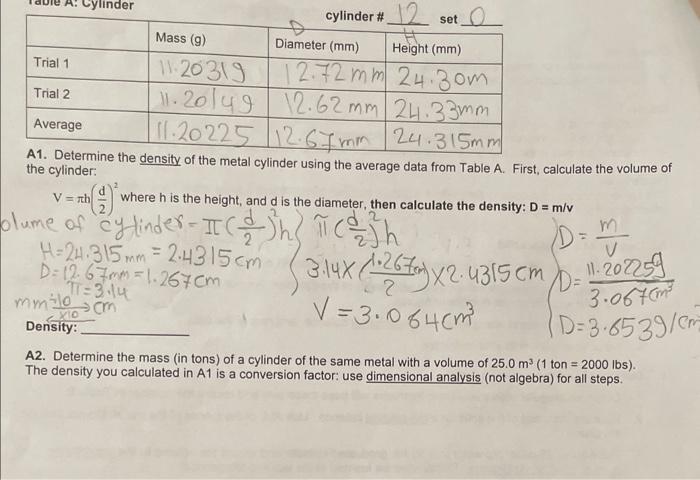 Table A: Cylinder
cylinder # 12 set O
D H
Mass (g) Diameter (mm) Height (mm)
Trial 1 11.2031g 12.72mm 24.30m
Trial 2 11.2014g 12.62mm 24.33mm
Average 11.20225 12.67mm 24.315mm
A1. Determine the density of the metal cylinder using the average data from Table A. First, calculate the volume of
the cylinder:
V = πh(d/2)² where h is the height, and d is the diameter, then calculate the density: D = m/v
olume of cylinder = π(d/2)²h
H=24.315mm = 2.4315cm
D=12.67mm=1.267cm
π=3.14
mm ÷10 → cm
×10
π(d/2)²h
3.14×(1.267cm/2)×2.4315cm
V=3.064cm³
D=m/V
D=11.20225g/3.067cm³
D=3.653g/cm
Density:
A2. Determine the mass (in tons) of a cylinder of the same metal with a volume of 25.0 m³ (1 ton = 2000 lbs).
The density you calculated in A1 is a conversion factor: use dimensional analysis (not algebra) for all steps.